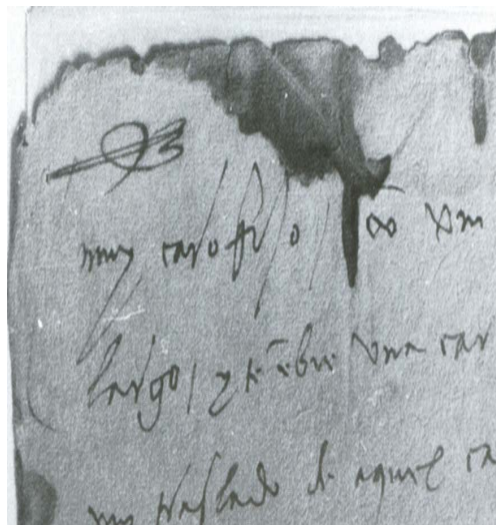 muy caro fijo
largo / y te ēbie vna car
un traslado de aquel ca